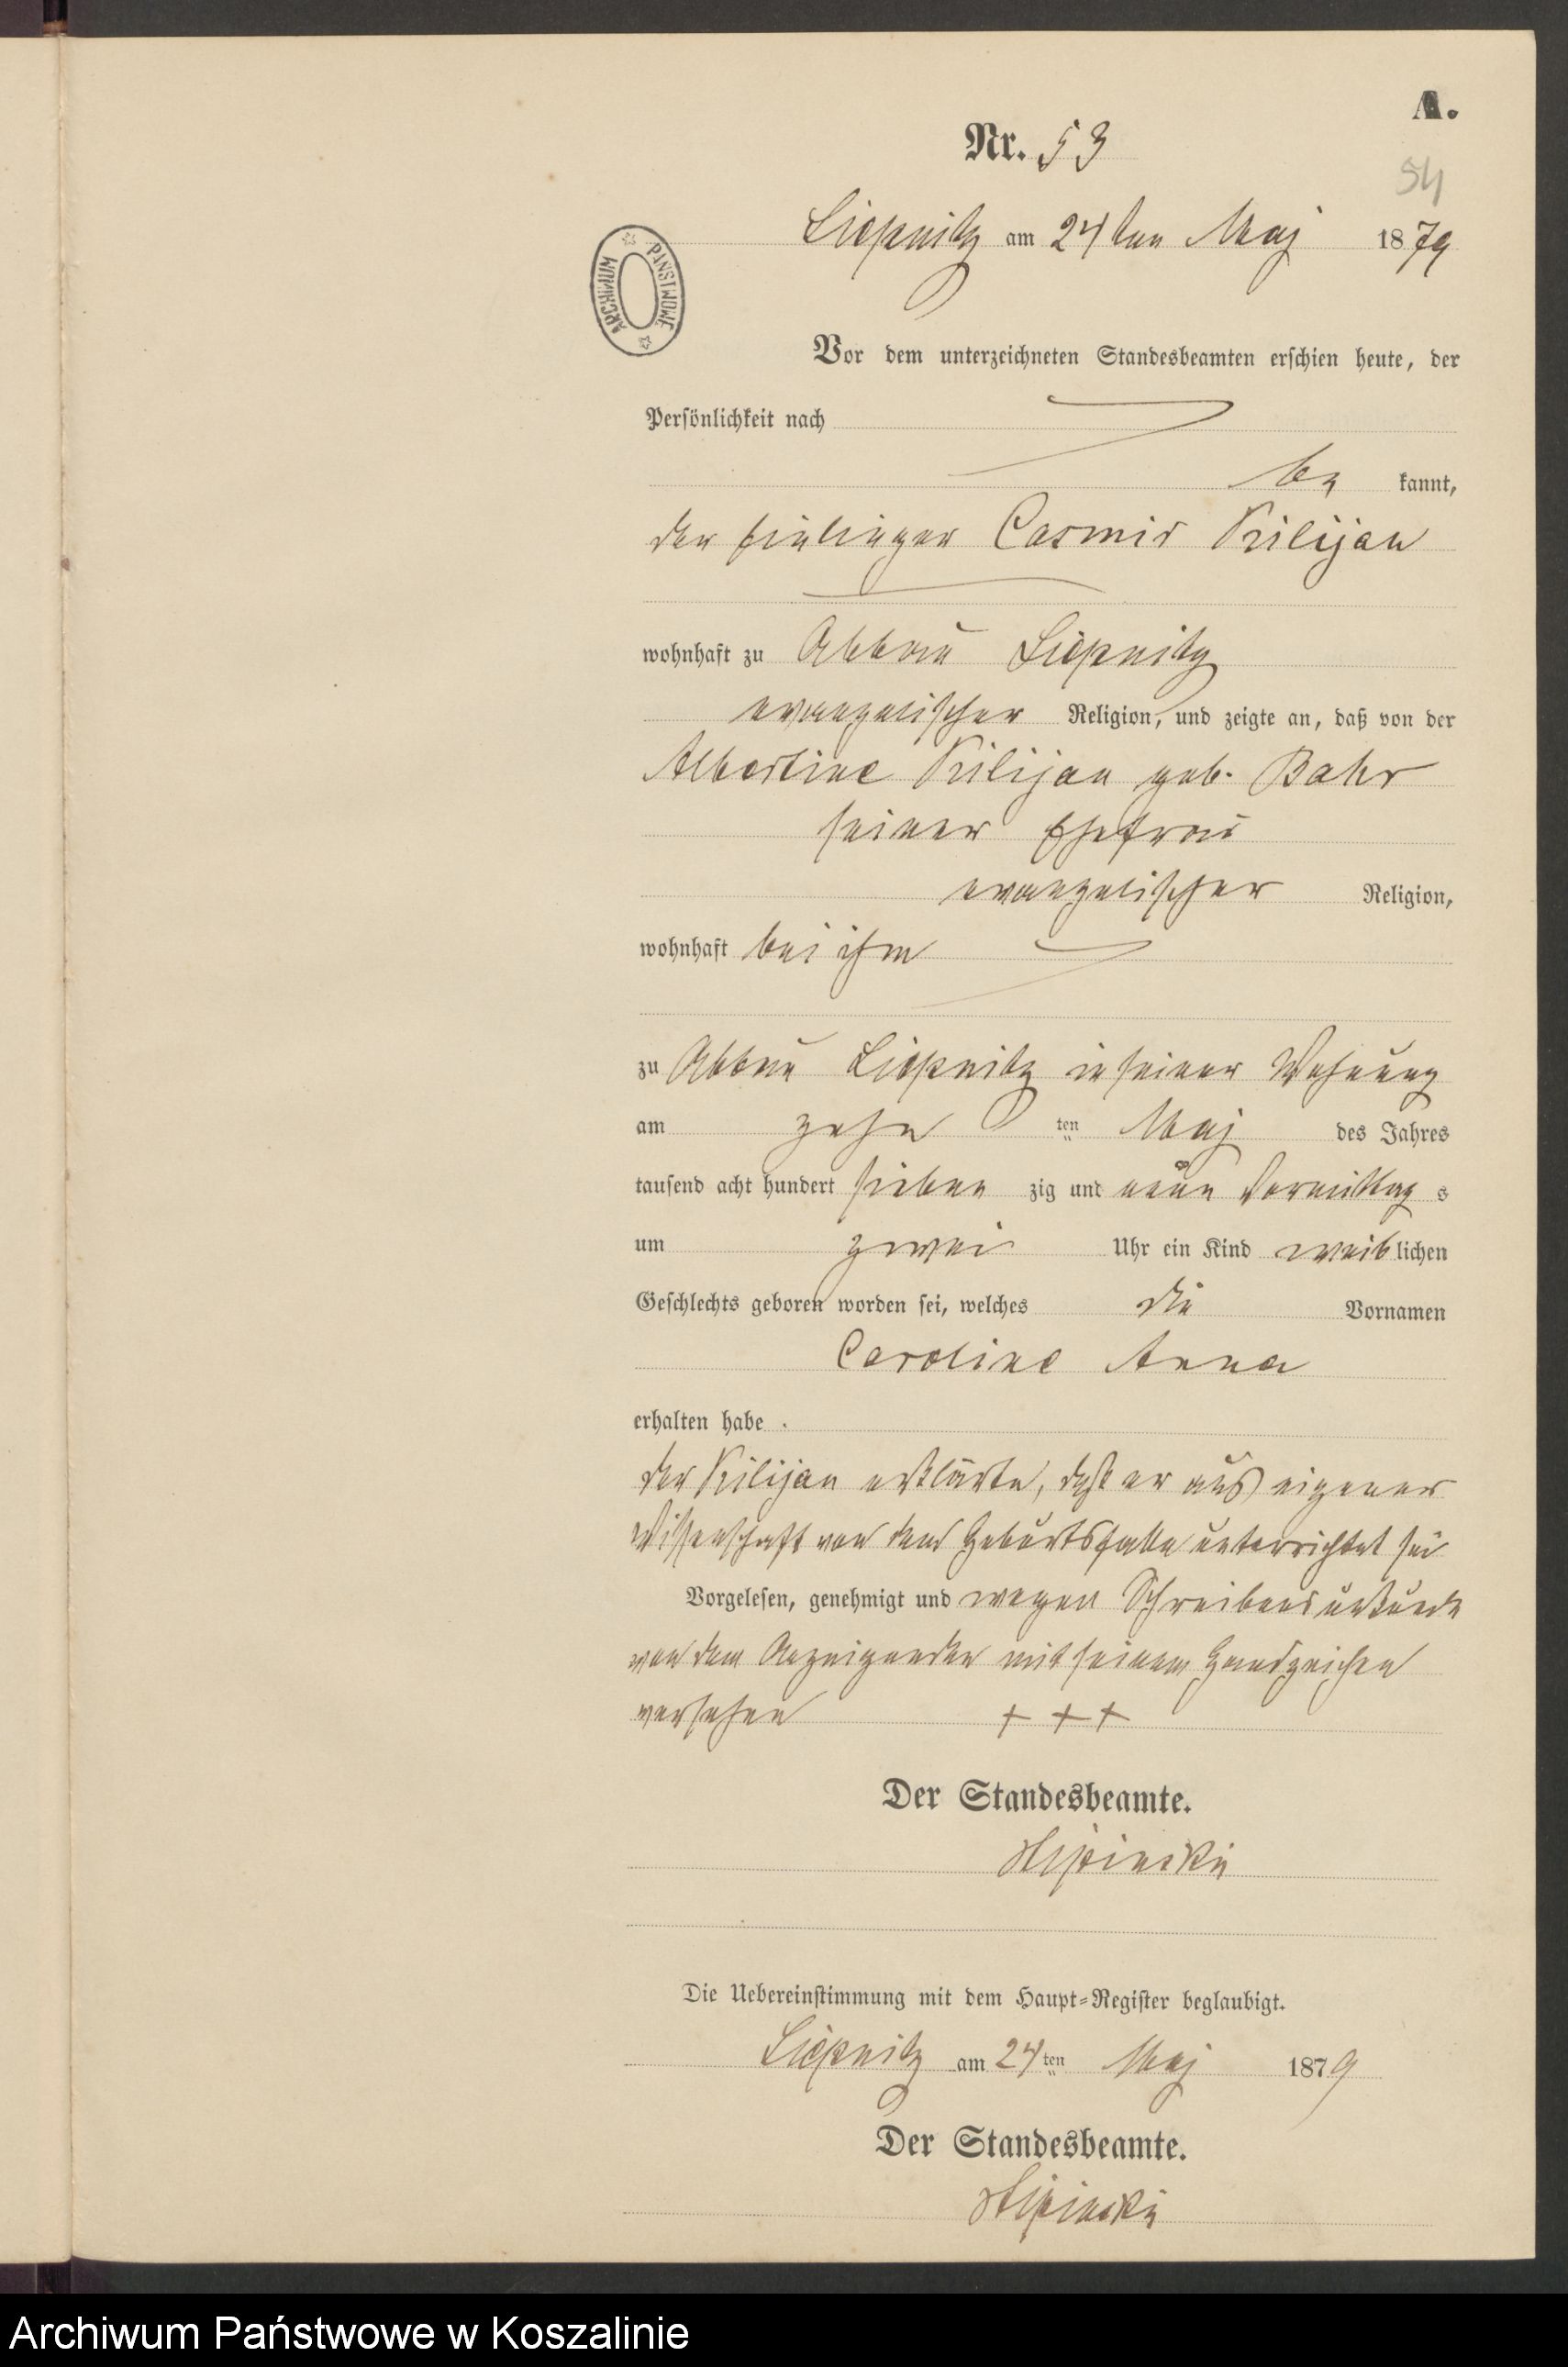 A.
Nr. 53
54
Liepnitz am 24 ten Maj 1879
ARCHIWUM PAŃSTWOWE
Vor dem unterzeichneten Standesbeamten erschien heute, der
Persönlichkeit nach
be kannt,
der Einlieger Casmir Kilijan
wohnhaft zu Abbau Liepnitz
evangelischer Religion, und zeigte an, daß von der
Albertine Kilijan geb. Bahr
seiner Ehefrau
evangelischer Religion,
wohnhaft bei ihm
zu Abbau Liepnitz in seiner Wohnung
am zehn ten Maj des Jahres
tausend acht hundert sieben zig und neun Vormittag s
um zwei Uhr ein Kind weiblichen
Geschlechts geboren worden sei, welches die Vornamen
Caroline Anna
erhalten habe .
der Kilijan erklärte, daß er aus eigener
Wissenschaft von dem Geburtsfalle unterrichtet sei
Vorgelesen, genehmigt und wegen Schreibensunkunde
von dem Anzeigenden mit seinem Handzeichen
versehen + + +
Der Standesbeamte.
Die Uebereinstimmung mit dem Haupt=Register beglaubigt.
Liepnitz am 24 ten Maj 1879
Der Standesbeamte.
Archiwum Państwowe w Koszalinie